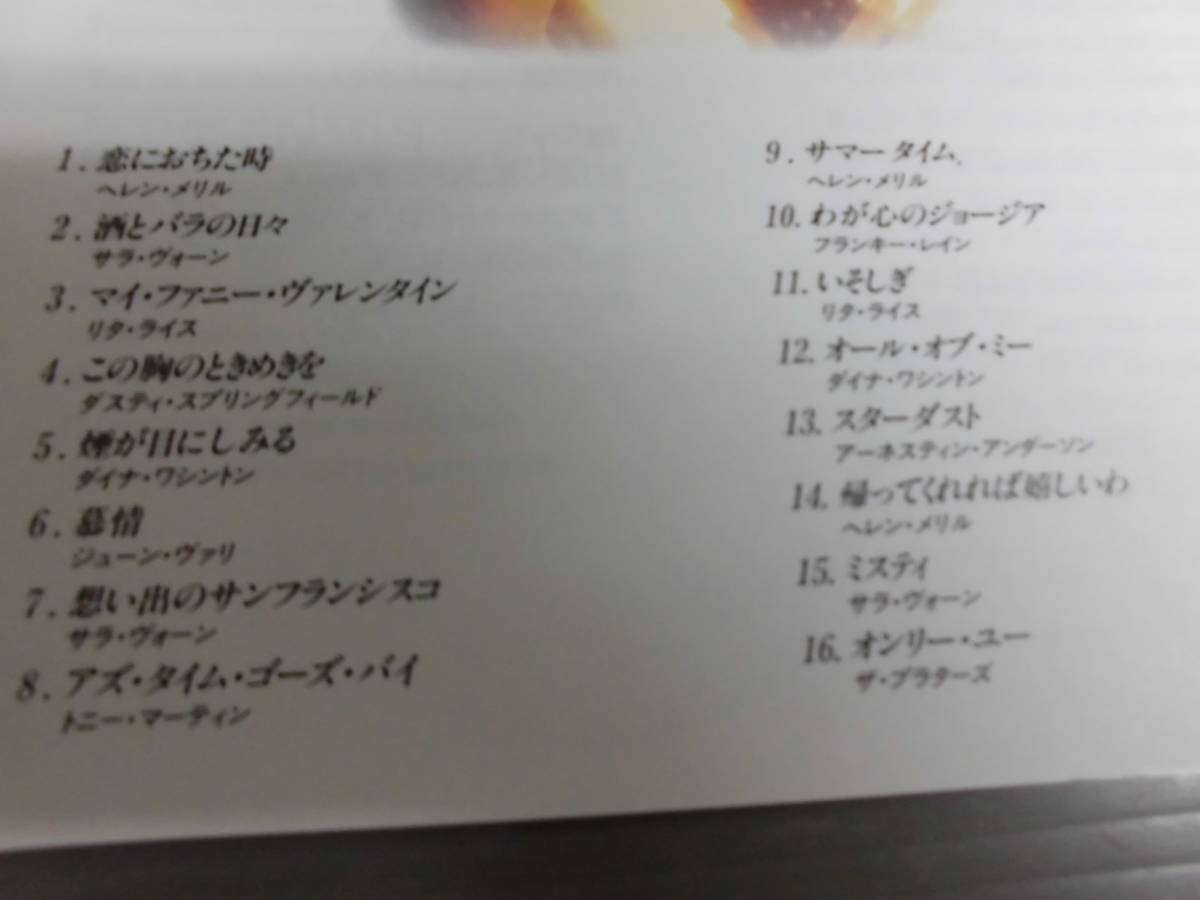 1. 恋におちた時
ヘレン・メリル
2. 酒とバラの日々
サラ・ヴォーン
3. マイ・ファニー・ヴァレンタイン
リタ・ライス
4. この胸のときめきを
ダスティ・スプリングフィールド
5. 煙が目にしみる
ダイナ・ワシントン
6. 慕情
ジューン・ヴァリ
7. 想い出のサンフランシスコ
サラ・ヴォーン
8. アズ・タイム・ゴーズ・バイ
トニー・マーティン
9. サマータイム
ヘレン・メリル
10. わが心のジョージア
フランキー・レイン
11. いそしぎ
リタ・ライス
12. オール・オブ・ミー
ダイナ・ワシントン
13. スターダスト
アーネスティン・アンダーソン
14. 帰ってくれれば嬉しいわ
ヘレン・メリル
15. ミスティ
サラ・ヴォーン
16. オンリー・ユー
ザ・プラターズ